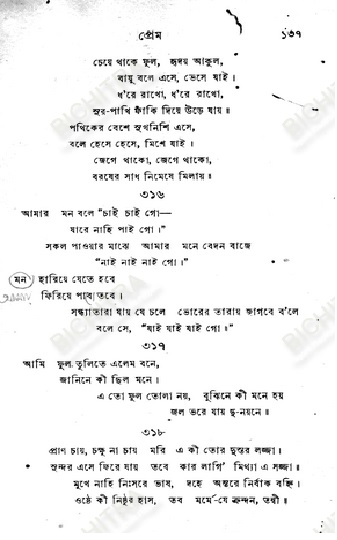 প্রেম ১৩৭
চেয়ে থাকে ফুল, হৃদয় আকুল,
বায়ু বলে এসে, ভেসে যাই।
ধ'রে রাখো, ধ'রে রাখো,
সুখ-পাখি ফাঁকি দিয়ে উড়ে যায়॥
পথিকের বেশে সুখনিশি এসে,
বলে হেসে হেসে, মিশে যাই।
জেগে থাকো, জেগে থাকো,
বরষের সাধ নিমেষে মিলায়॥
৩১৬
আমার মন বলে "চাই চাই গো—
যারে নাহি পাই গো।"
সকল পাওয়ার মাঝে আমার মনে বেদন বাজে
"নাই নাই নাই গো।"
মন হারিয়ে যেতে হবে
ফিরিয়ে পাব তবে।
সন্ধ্যাতারা যায় যে চলে ভোরের তারায় জাগবে ব'লে
বলে সে, "যাই যাই যাই গো।"
৩১৭
আমি ফুল তুলিতে এলেম বনে,
জানিনে কী ছিল মনে।
এ তো ফুল তোলা নয়, বুঝিনে কী মনে হয়
জল ভরে যায় দু-নয়নে॥
৩১৮
প্রাণ চায়, চক্ষু না চায় মরি এ কী তোর দুস্তর লজ্জা।
সুন্দর এসে ফিরে যায় তবে কার লাগি' মিথ্যা এ সজ্জা।
মুখে নাহি নিঃসরে ভাষ, দহে অন্তরে নির্বাক বহ্নি।
ওষ্ঠে কী নিষ্ঠুর হাস, তব মর্মে যে ক্রন্দন, তন্বী।